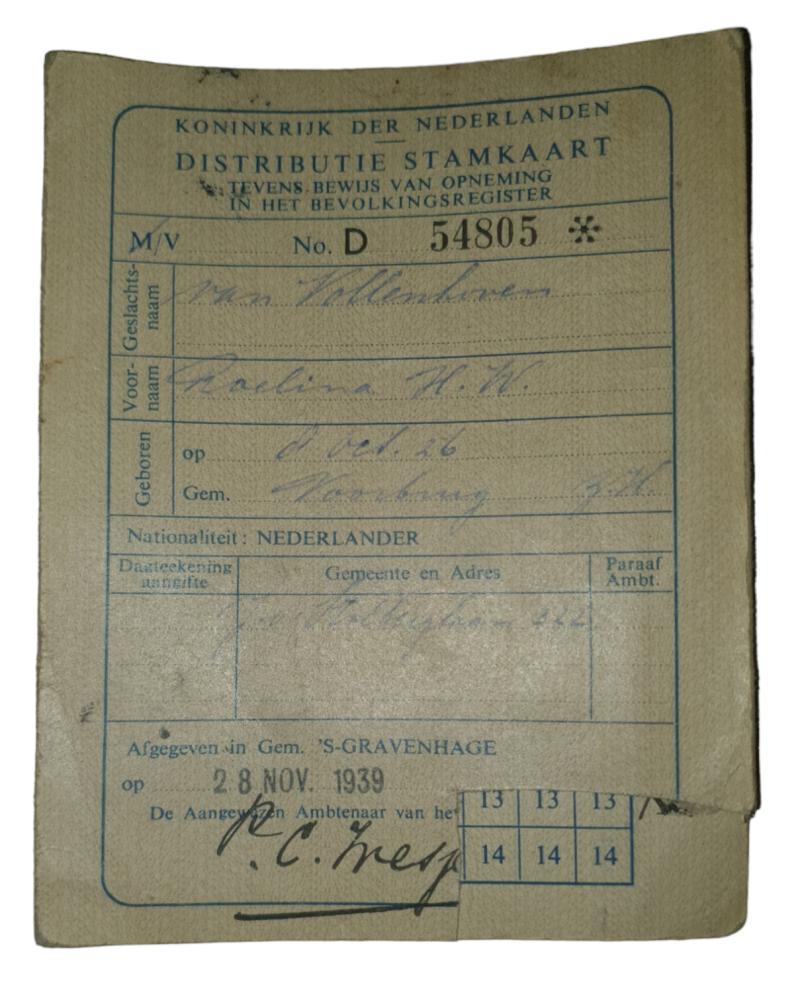 KONINKRIJK DER NEDERLANDEN
DISTRIBUTIE STAMKAART
TEVENS BEWIJS VAN OPNEMING
IN HET BEVOLKINGSREGISTER
M/V No. D 54805 *
Geslachts-
naam
van Vollenhoven
Voor-
naam
Roelina H. W.
Geboren
op 8 Oct. 26
Gem. Voorburg Z.H.
Nationaliteit: NEDERLANDER
Dagteekening
aangifte
Gemeente en Adres
Paraaf
Ambt.
Afgegeven in Gem. 'S-GRAVENHAGE
op 28 NOV. 1939
De Aangewezen Ambtenaar van he
13 13 13
14 14 14